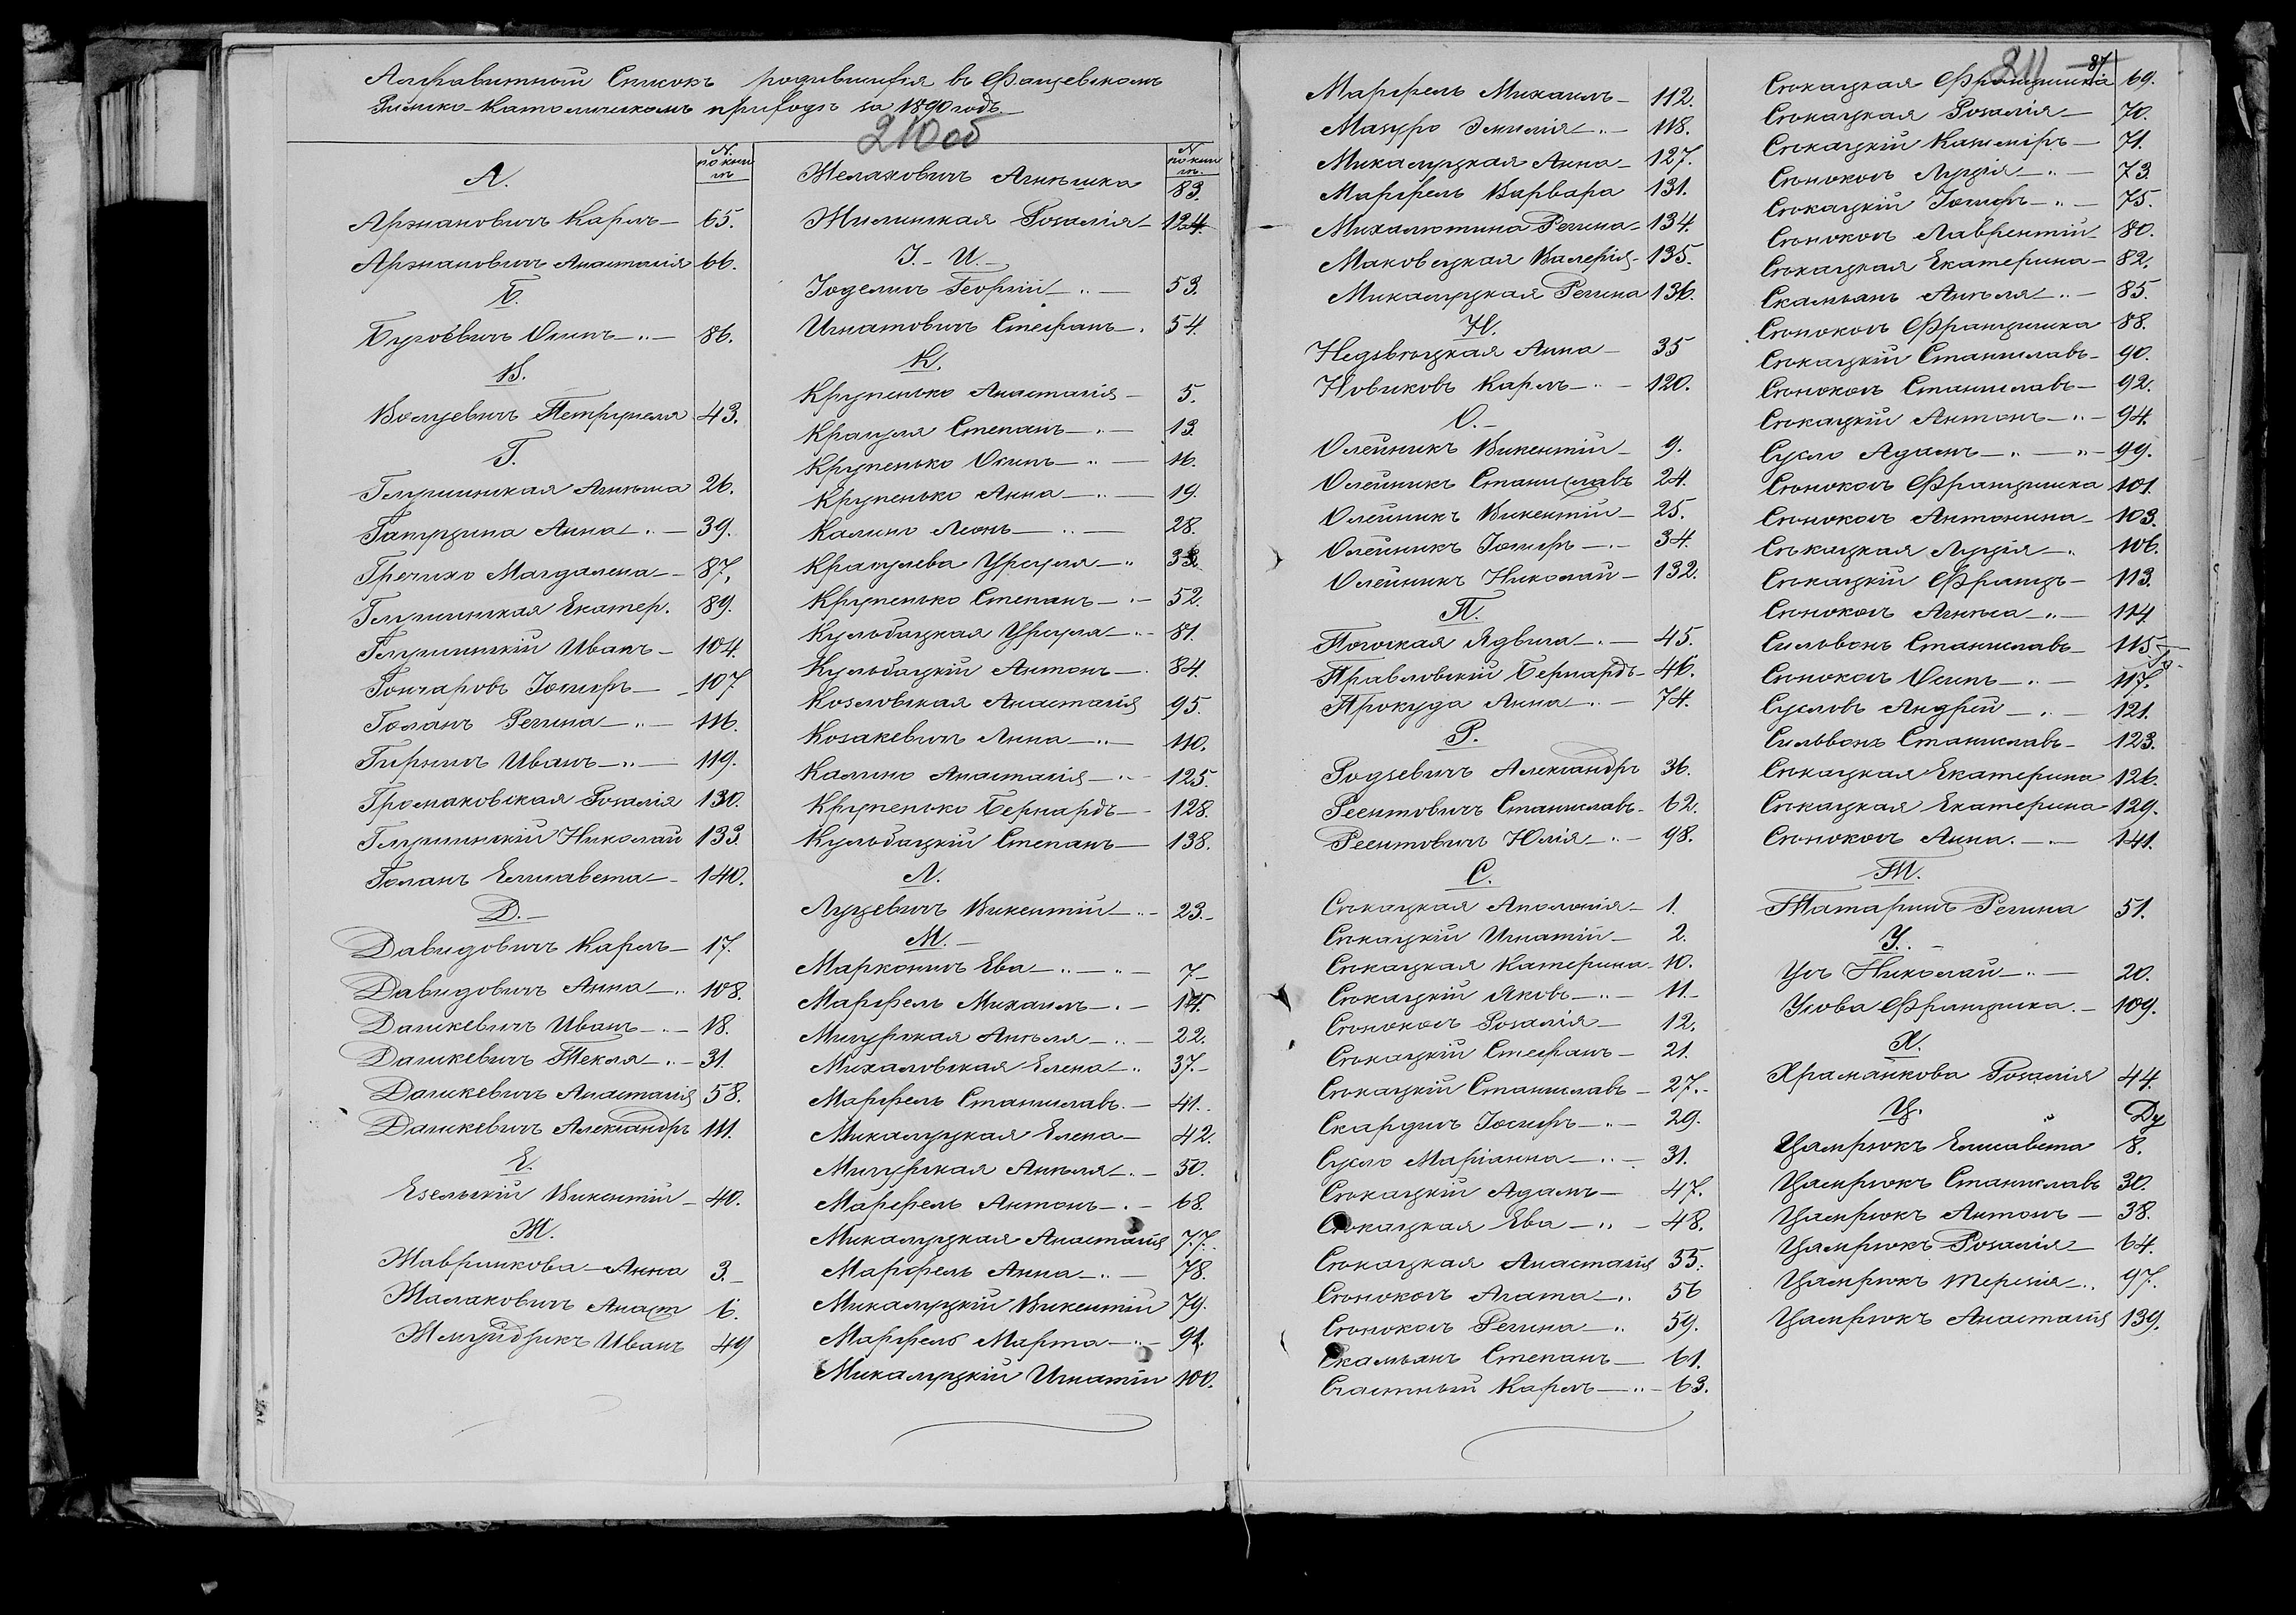 Алфавитный Списокъ родившихся въ Фащевскомъ
Римско-Католическомъ приходѣ за 1890 годъ.
210 об
N. по книгѣ
А.
Аржановичъ Карлъ 65.
Аржановичъ Анастасія 66.
Б.
Бугоевичъ Осипъ 86.
В.
Волуевичъ Петрунеля 43.
Г.
Глушинская Агнѣша 26.
Гатуцина Анна 39.
Гречихо Магдалена 87.
Глушинская Екатер. 89.
Глушинскій Иванъ 104.
Гончаровъ Іосифъ 107
Голанъ Регина 116.
Гирничъ Иванъ 119.
Громаковская Розалія 130.
Глушинскій Николай 133.
Голанъ Елисавета 140.
Д.
Давидовичъ Карлъ 17.
Давидовичъ Анна 108.
Дашкевичъ Иванъ 18.
Дашкевичъ Текля 31.
Дашкевичъ Анастасія 58.
Дашкевичъ Александръ 111.
Е.
Езельскій Викентій 40.
Ж.
Жавринкова Анна 3.
Жалаковичъ Анаст 6.
Жмуйдзикъ Иванъ 49
N. по книгѣ
Желаковичъ Агнѣшка 83.
Жилинская Розалія 124.
І.-И.
Іоделичъ Георгій 53.
Игнатовичъ Стефанъ 54.
К.
Крупенько Анастасія 5.
Крацуля Степанъ 13.
Крупенько Осипъ 16.
Крупенько Анна 19.
Калино Леонъ 28.
Крацулева Урсуля 33.
Крупенько Степанъ 52.
Кульбацкая Урсула 81.
Кульбацкій Антонъ 84.
Козловская Анастасія 95.
Козакевичъ Анна 110.
Калино Анастасія 125.
Крупенько Бернардъ 128.
Кульбацкій Степанъ 138.
Л.
Луцевичъ Викентій 23.
М.
Марконичъ Ева 7
Марфель Михаилъ 14.
Мигурская Анѣля 22.
Михаловская Елена 37.
Марфель Станиславъ 41.
Микалуцкая Елена 42.
Мигурская Анѣля 50.
Марфель Антонъ 68.
Микалуцкая Анастасія 77.
Марфель Анна 78.
Микалуцкій Викентій 79.
Марфель Марта 91.
Микалуцкій Игнатій 100.
Марфель Михаилъ 112.
Мазуро Эмилія 118.
Микалуцкая Анна 127.
Марфель Варвара 131.
Михалютина Регина 134.
Маковецкая Валерія 135.
Микалуцкая Регина 136.
Н.
Недзвѣцкая Анна 35
Новиковъ Карлъ 120.
О.
Олейникъ Викентій 9.
Олейникъ Станиславъ 24.
Олейникъ Викентій 25.
Олейникъ Іосифъ 34.
Олейникъ Николай 132.
П.
Погоская Ядвига 45.
Правловскій Бернардъ 46.
Прокуда Анна 74.
Р.
Родзевичъ Александръ 36.
Реентовичъ Станиславъ 62.
Реентовичъ Юлія 98.
С.
Сѣкацкая Аполонія 1.
Сѣкацкій Игнатій 2.
Сѣкацкая Катерина 10.
Сѣкацкій Яковъ 11.
Сѣнокосъ Розалія 12.
Сѣкацкій Стефанъ 21.
Сѣкацкій Станиславъ 27.
Скардичъ Іосифъ 29.
Сусло Маріанна 31.
Сѣкацкій Адамъ 47.
Сѣкацкая Ева 48.
Сѣкацкая Анастасія 55.
Сѣнокосъ Агата 56
Сѣнокосъ Регина 59.
Скамьянъ Степанъ 61.
Счастный Карлъ 63.
211 87
Сѣкацкая Францишка 69.
Сѣкацкая Розалія 70.
Сѣкацкій Казиміръ 71.
Сѣнокосъ Луція 73.
Сѣкацкій Іосифъ 75.
Сѣнокосъ Лаврентій 80.
Сѣкацкая Екатерина 82.
Скамьянъ Анѣля 85.
Сѣнокосъ Францишка 88.
Сѣкацкій Станиславъ 90.
Сѣнокосъ Станиславъ 92.
Сѣкацкій Антонъ 94.
Сусло Адамъ 99.
Сѣнокосъ Францишка 101.
Сѣнокосъ Антонина 103.
Сѣкацкая Луція 106.
Сѣкацкій Францъ 113.
Сѣнокосъ Агнѣса 114
Сильвонъ Станиславъ 115
Сѣнокосъ Осипъ 117.
Сусловъ Андрей 121.
Сильвонъ Станиславъ 123.
Сѣкацкая Екатерина 126.
Сѣкацкая Екатерина 129.
Сѣнокосъ Анна 141.
Т.
Татаринъ Регина 51.
У.
Усъ Николай 20.
Усова Францишка 109.
Х.
Храманкова Розалія 44.
Ц.
Цямрюкъ Елисавета 8.
Цямрюкъ Станиславъ 30.
Цямрюкъ Антонъ 38.
Цямрюкъ Розалія 64.
Цямрюкъ Терезія 97.
Цямрюкъ Анастасія 139.